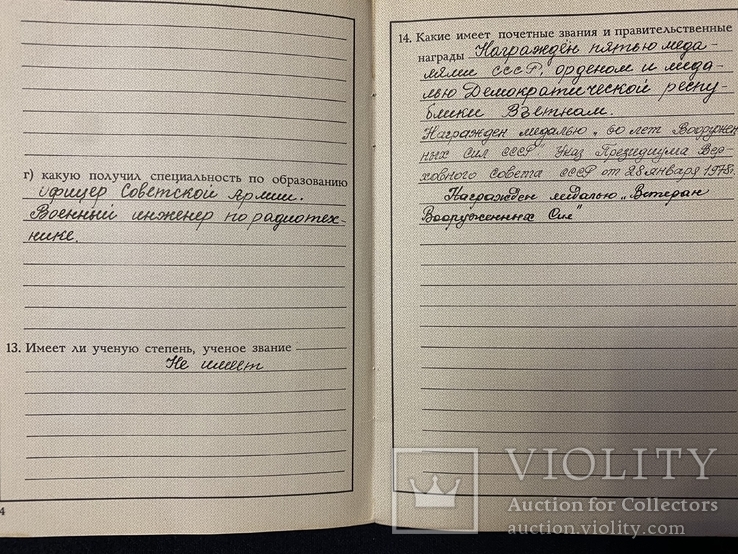 г) какую получил специальность по образованию
офицер Советской Армии.
Военный инженер по радиотех-
нике.
13. Имеет ли ученую степень, ученое звание
Не имеет
4
14. Какие имеет почетные звания и правительственные
награды Награждён пятью меда-
лями СССР, орденом и меда-
лью Демократической респу-
блики Вьетнам.
Награжден медалью „60 лет Вооружен
ных Сил СССР" Указ Президиума Вер-
ховного Совета СССР от 28 января 1978г.
Награжден медалью „Ветеран
Вооруженных Сил"
VIOLITY
Auction for Collectors
auction.violity.com